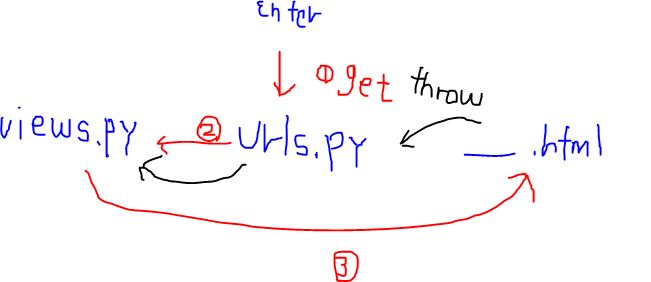 enter
① get throw
views.py ② urls.py ___ .html
③